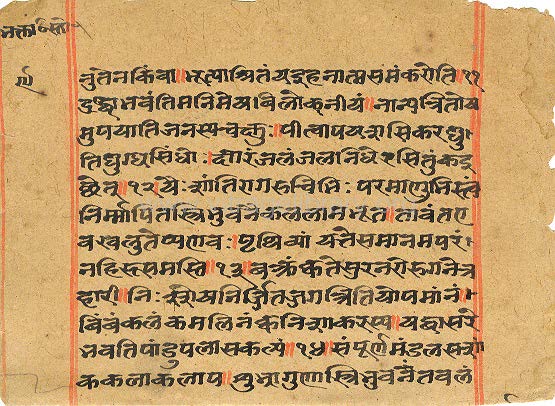 भक्तांस्तो
नुतेनकिंवा॥भूत्याश्रितंयइहनात्मसमंकरोति॥११
दृष्ट्वाभवंतमनिमेषविलोकनीयं॥नान्यत्रतोष
मुपयातिजनस्यचक्षुः॥पीत्वापयःशशिकरद्यु
तिदुग्धसिंधोः क्षीरंजलंजलनिधेरसितुंकइ
च्छेत्॥१२यैःशांतिरागरुचिभिः परमाणुभिस्त्वं
निर्मापितस्त्रिभुवनैकललामभूत॥तावंतए
वखलुतेप्यणवः॥पृथिव्यां यत्तेसमानमपरं
नहिरूपमस्ति॥१३॥वक्त्रंक्वतेसुरनरोरगनेत्र
हारी॥निःशेषनिर्ज्जितजगत्त्रितयोपमानं।
बिंबंकलंकमलिनंक्वनिशाकरस्य॥यद्वासरे
भवतिपांडुपलाशकल्पं॥१४॥संपूर्णमंडलशशां
ककलाकलाप॥शुभ्रागुणास्त्रिभुवनंतवलं